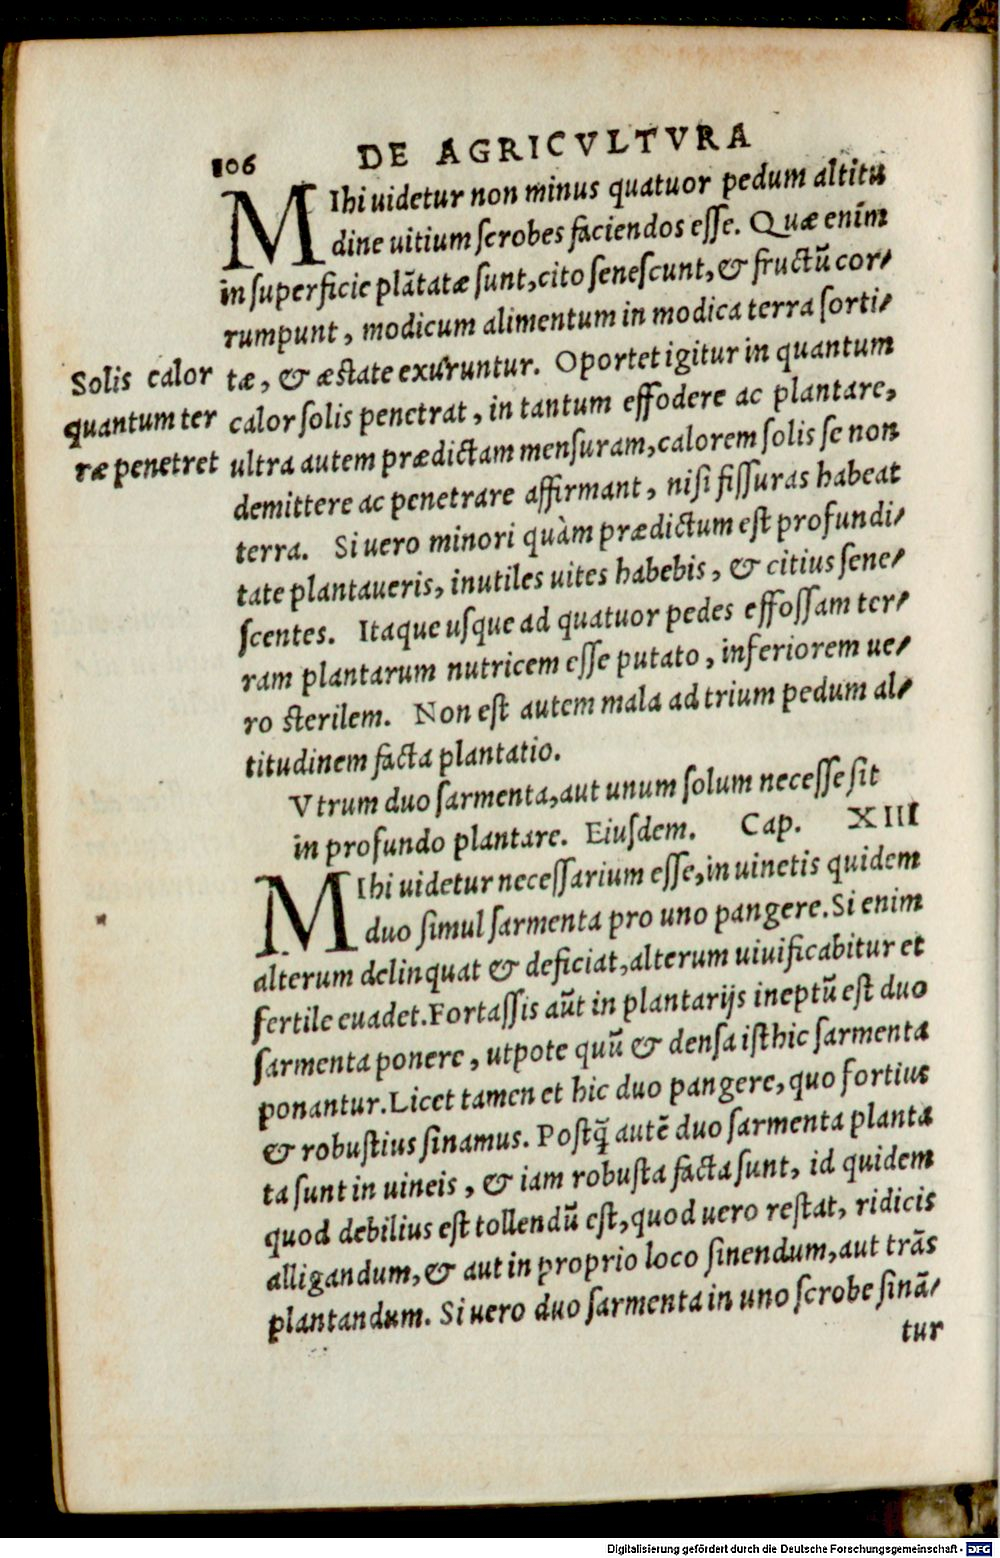 106 DE AGRICVLTVRA
MIhi uidetur non minus quatuor pedum altitu
dine uitium scrobes faciendos esse. Quæ enim
in superficie plãtatæ sunt, cito senescunt, & fructũ cor-
rumpunt, modicum alimentum in modica terra sorti-
tæ, & æstate exuruntur. Oportet igitur in quantum
calor solis penetrat, in tantum effodere ac plantare,
ultra autem prædictam mensuram, calorem solis se non
demittere ac penetrare affirmant, nisi fissuras habeat
terra. Si uero minori quàm prædictum est profundi-
tate plantaueris, inutiles uites habebis, & citius sene-
scentes. Itaque usque ad quatuor pedes effossam ter-
ram plantarum nutricem esse putato, inferiorem ue-
ro sterilem. Non est autem mala ad trium pedum al-
titudinem facta plantatio.
Solis calor
quantum ter
ræ penetret
Vtrum duo sarmenta, aut unum solum necesse sit
in profundo plantare. Eiusdem. Cap. XIII
MIhi uidetur necessarium esse, in uinetis quidem
duo simul sarmenta pro uno pangere. Si enim
alterum delinquat & deficiat, alterum uiuificabitur et
fertile euadet. Fortassis aũt in plantarijs ineptũ est duo
sarmenta ponere, utpote quũ & densa isthic sarmenta
ponantur. Licet tamen et hic duo pangere, quo fortius
& robustius sinamus. Postq̃ autẽ duo sarmenta planta
ta sunt in uineis, & iam robusta facta sunt, id quidem
quod debilius est tollendũ est, quod uero restat, ridicis
alligandum, & aut in proprio loco sinendum, aut trãs
plantandum. Si uero duo sarmenta in uno scrobe sinã-
tur
Digitalisierung gefördert durch die Deutsche Forschungsgemeinschaft - DFG